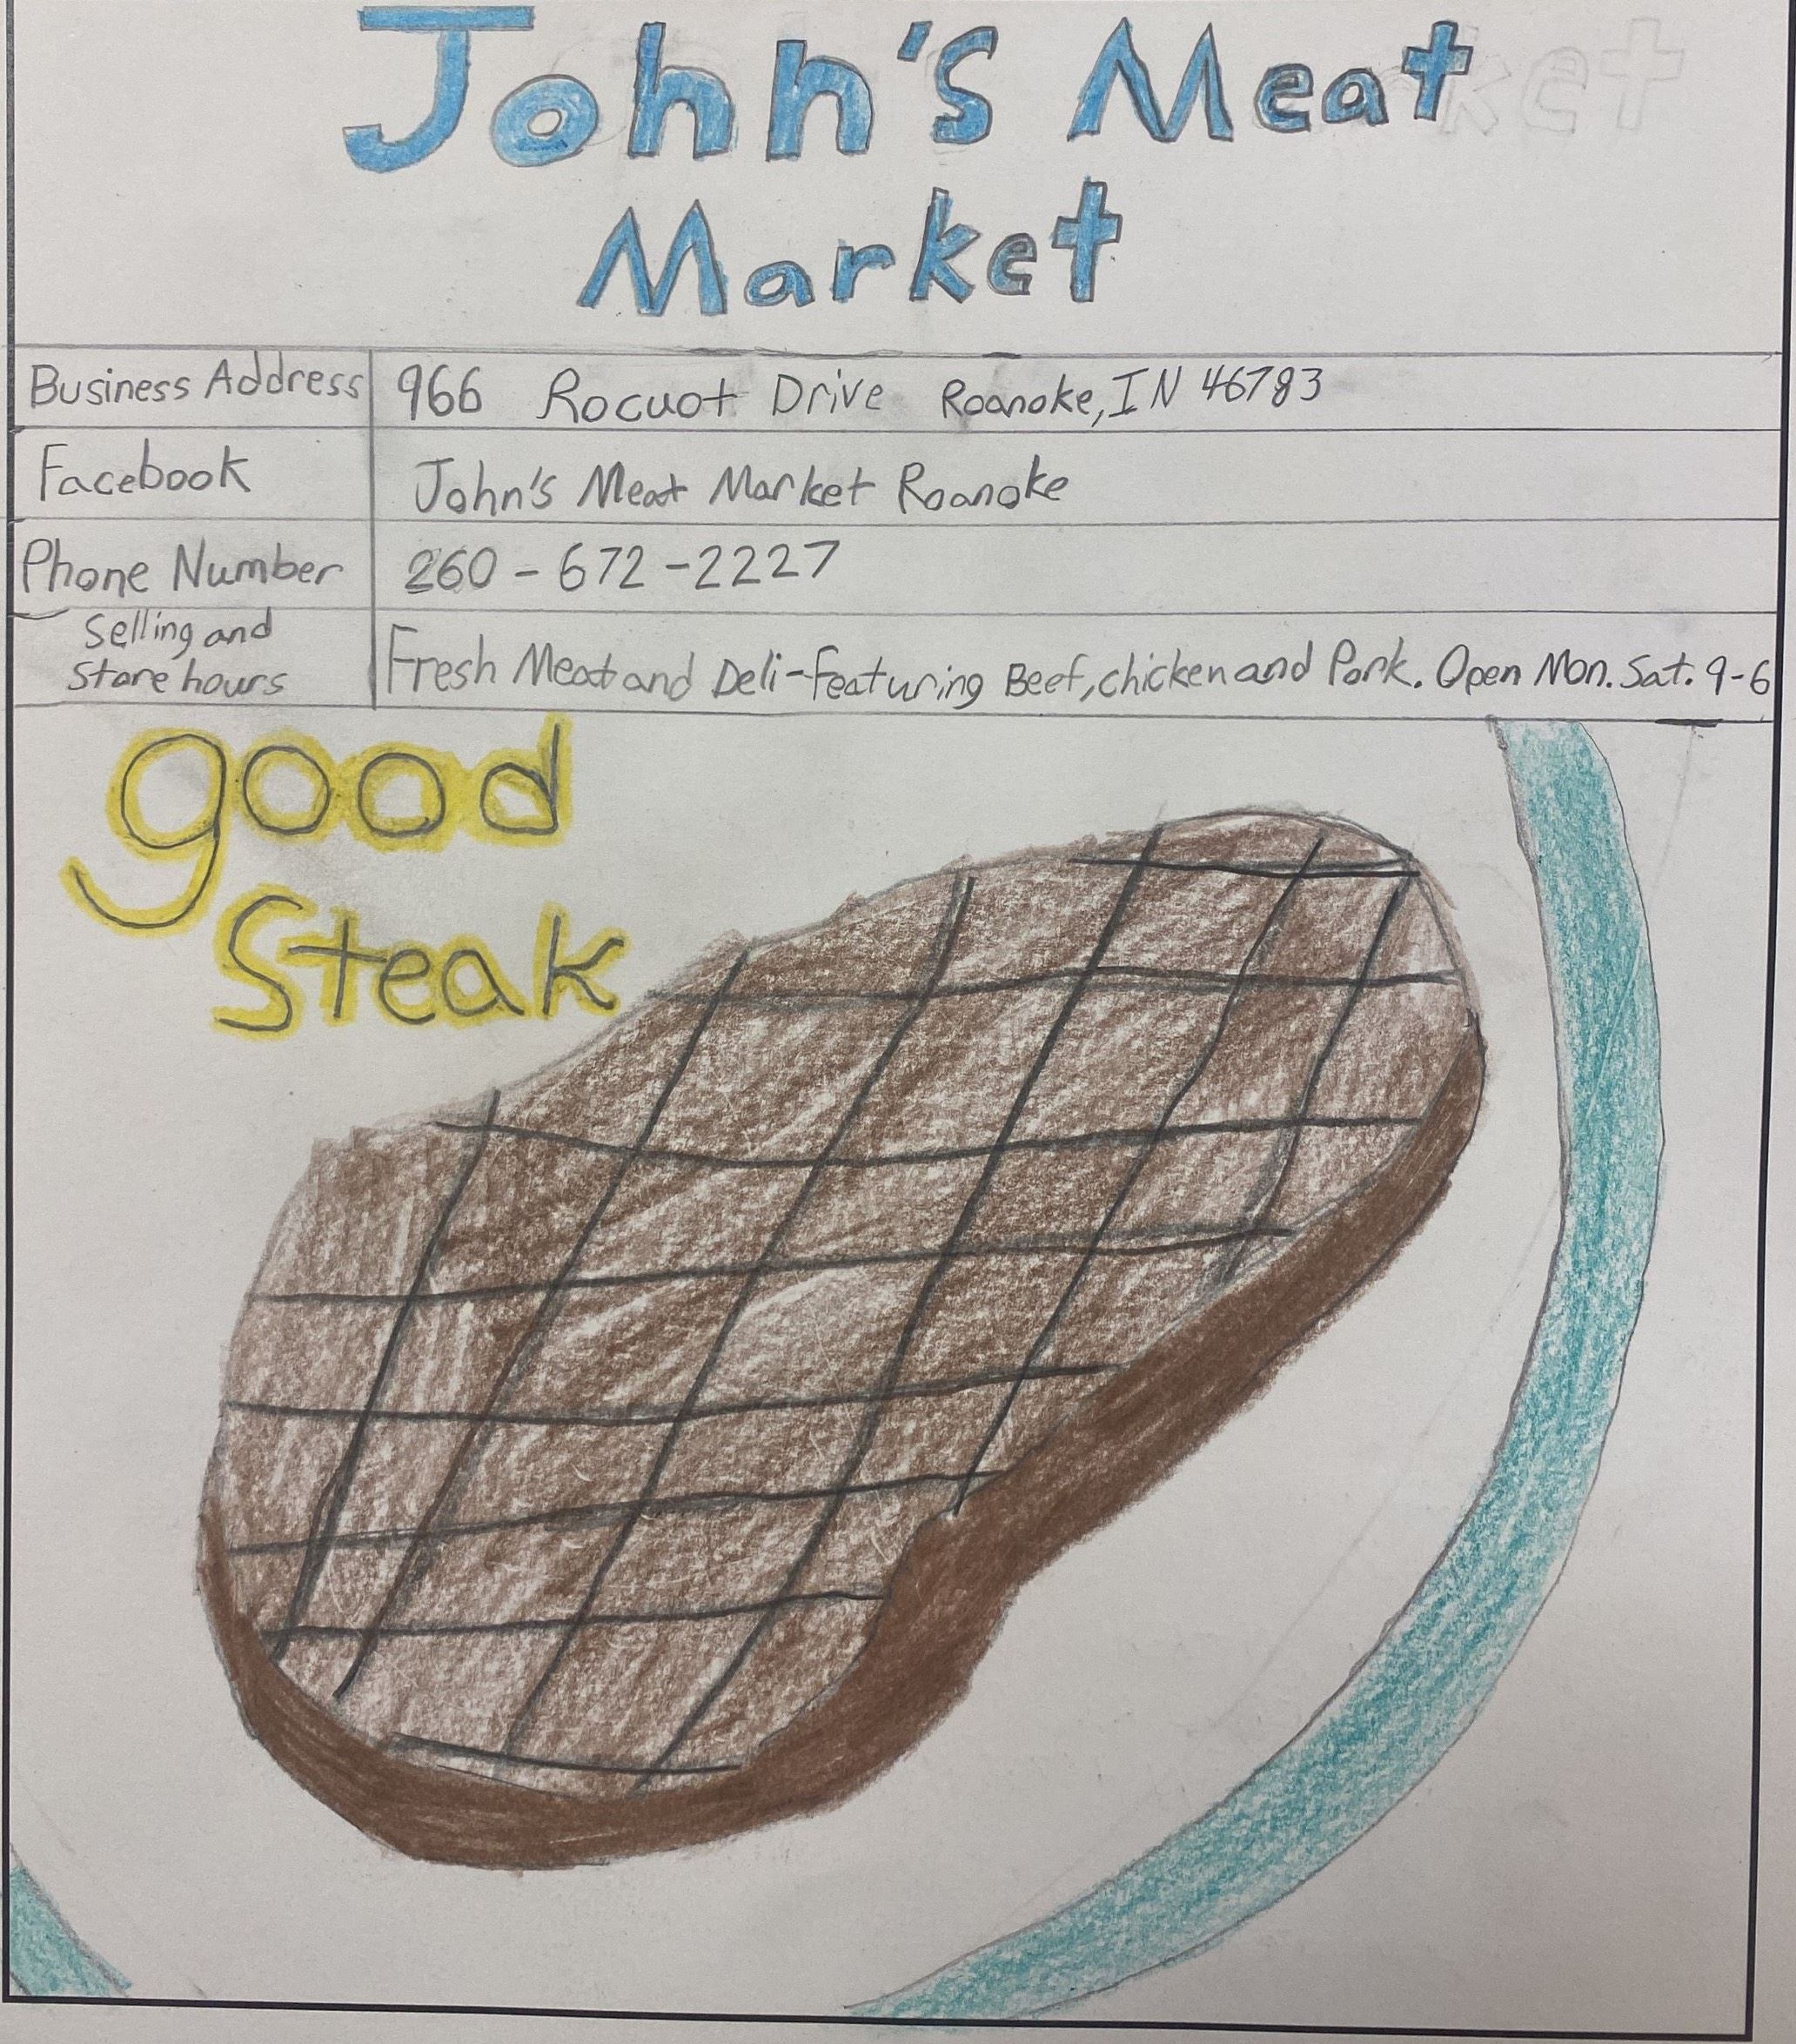 John's Meat
Market
Business Address 966 Rocuot Drive Roanoke, IN 46783
Facebook John's Meat Market Roanoke
Phone Number 260-672-2227
Selling and
Store hours Fresh Meat and Deli-Featuring Beef, chicken and Pork. Open Mon. Sat. 9-6
good
Steak